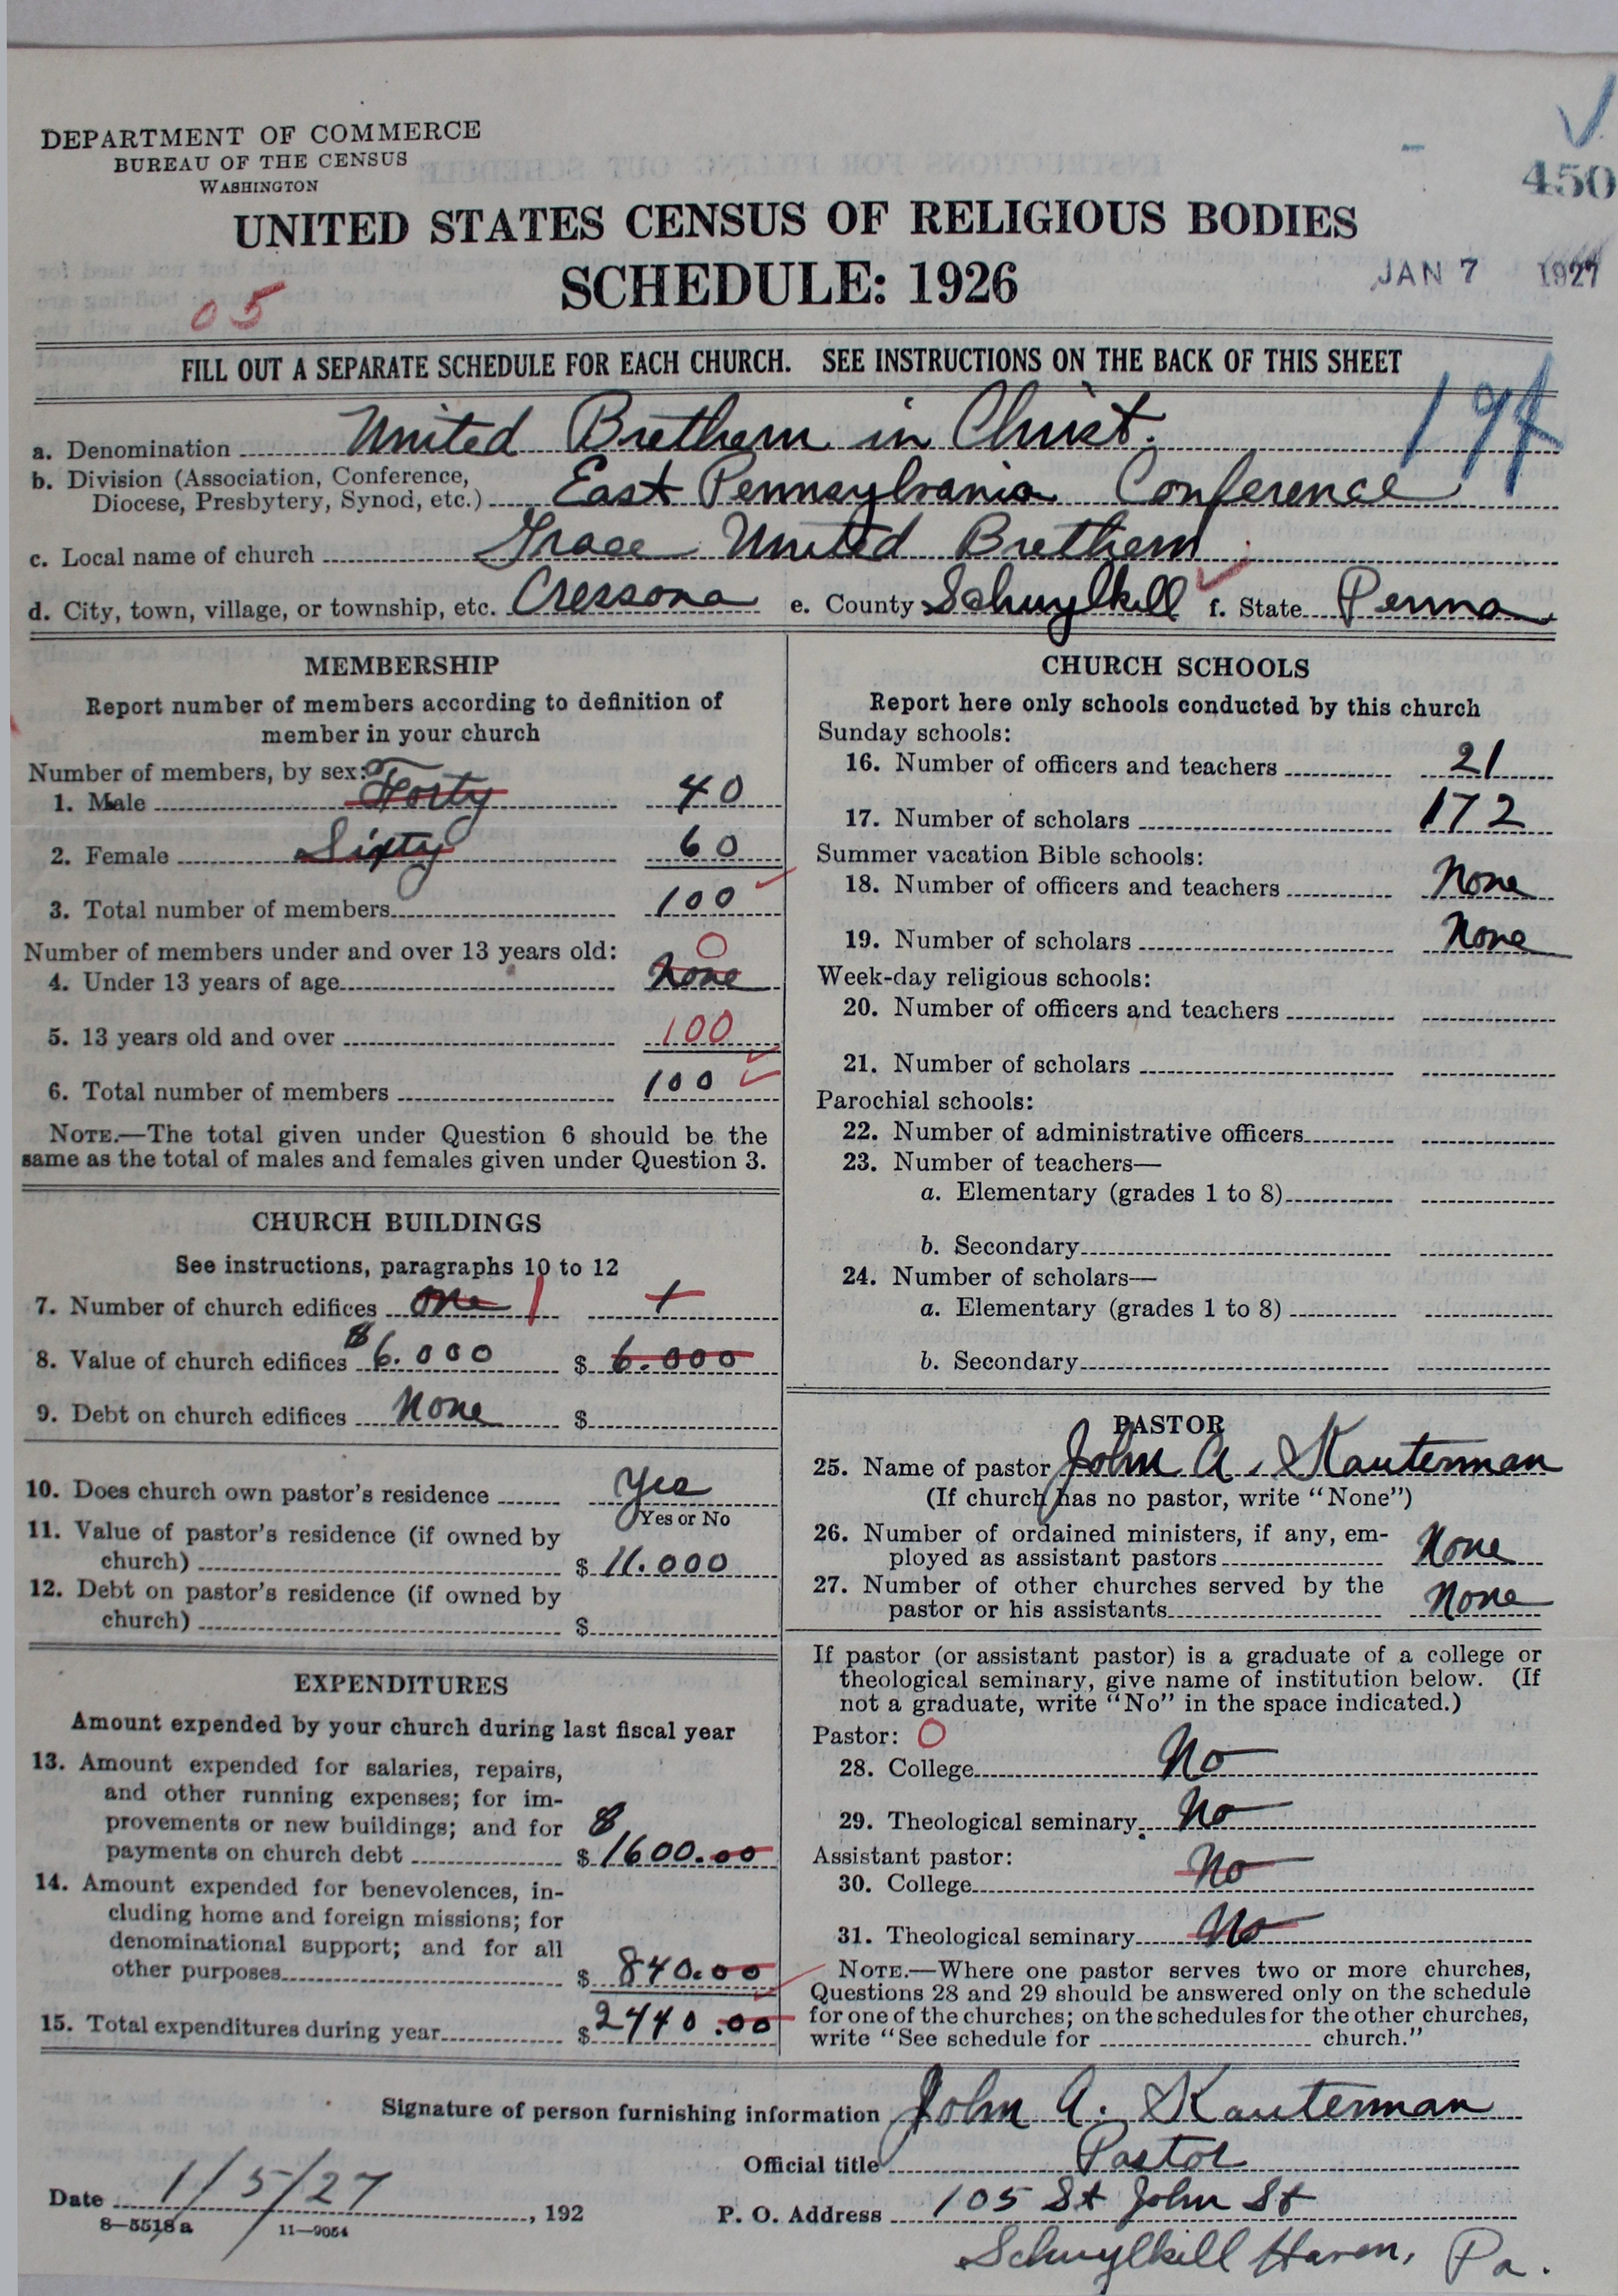 DEPARTMENT OF COMMERCE
BUREAU OF THE CENSUS
WASHINGTON
450
UNITED STATES CENSUS OF RELIGIOUS BODIES
SCHEDULE: 1926
JAN 7 1927
05
FILL OUT A SEPARATE SCHEDULE FOR EACH CHURCH. SEE INSTRUCTIONS ON THE BACK OF THIS SHEET
a. Denomination United Brethern in Christ.
b. Division (Association, Conference,
Diocese, Presbytery, Synod, etc.) East Pennsylvania Conference
c. Local name of church Grace United Brethern
d. City, town, village, or township, etc. Cressona e. County Schuylkill f. State Penna
MEMBERSHIP
Report number of members according to definition of
member in your church
Number of members, by sex:
1. Male Forty 40
2. Female Sixty 60
3. Total number of members 100
Number of members under and over 13 years old:
0
4. Under 13 years of age None
5. 13 years old and over 100
6. Total number of members 100
NOTE.—The total given under Question 6 should be the
same as the total of males and females given under Question 3.
CHURCH BUILDINGS
See instructions, paragraphs 10 to 12
7. Number of church edifices one 1 1
8. Value of church edifices $6.000 $ 6.000
9. Debt on church edifices None $
10. Does church own pastor's residence Yes
Yes or No
11. Value of pastor's residence (if owned by
church) $ 11.000
12. Debt on pastor's residence (if owned by
church) $
EXPENDITURES
Amount expended by your church during last fiscal year
13. Amount expended for salaries, repairs,
and other running expenses; for im-
provements or new buildings; and for
payments on church debt $ 1600.00
14. Amount expended for benevolences, in-
cluding home and foreign missions; for
denominational support; and for all
other purposes $ 840.00
15. Total expenditures during year $ 2440.00
CHURCH SCHOOLS
Report here only schools conducted by this church
Sunday schools:
16. Number of officers and teachers 21
17. Number of scholars 172
Summer vacation Bible schools:
18. Number of officers and teachers None
19. Number of scholars None
Week-day religious schools:
20. Number of officers and teachers
21. Number of scholars
Parochial schools:
22. Number of administrative officers
23. Number of teachers—
a. Elementary (grades 1 to 8)
b. Secondary
24. Number of scholars—
a. Elementary (grades 1 to 8)
b. Secondary
PASTOR
25. Name of pastor John A. Kauterman
(If church has no pastor, write "None")
26. Number of ordained ministers, if any, em-
ployed as assistant pastors None
27. Number of other churches served by the
pastor or his assistants None
If pastor (or assistant pastor) is a graduate of a college or
theological seminary, give name of institution below. (If
not a graduate, write "No" in the space indicated.)
Pastor: 0
28. College No
29. Theological seminary No
Assistant pastor:
30. College No
31. Theological seminary No
NOTE.—Where one pastor serves two or more churches,
Questions 28 and 29 should be answered only on the schedule
for one of the churches; on the schedules for the other churches,
write "See schedule for church."
Signature of person furnishing information John A. Kauterman
Official title Pastor
Date 1/5/27, 192
P. O. Address 105 St John St
8—5518 a 11—9054
Schuylkill Haven, Pa.